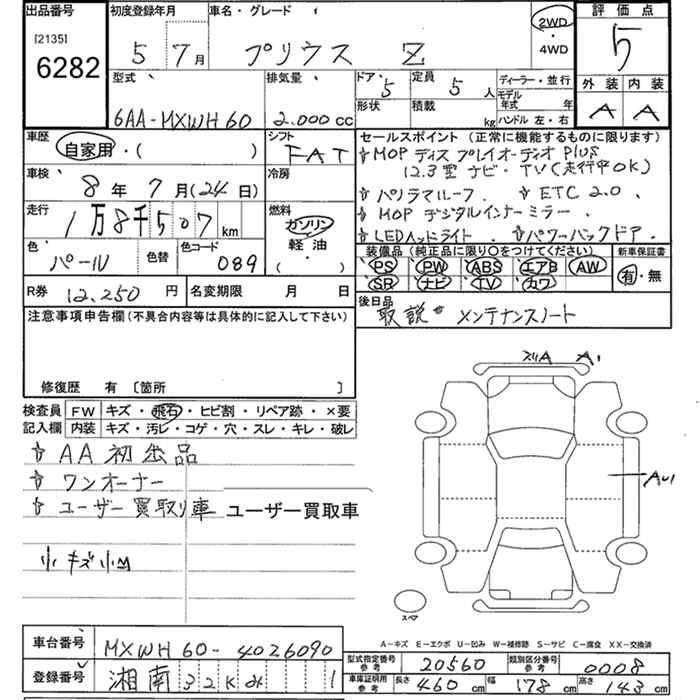 出品番号 [2135] 6282
初度登録年月 5年 7月
車名・グレード プリウス Z
2WD ・ 4WD
評価点 5
外装 A 内装 A
型式 6AA-MXWH60
排気量 2.000 cc
ドア 5 定員 5人
形状 積載 kg
ディーラー・並行
モデル年式 年
ハンドル 左・右
車歴 自家用・( )
シフト FAT
車検 8年 7月(24日)
冷房
走行 1万8千507km
燃料 ガソリン 軽油 ( )
色 パール 色替 色コード 089
セールスポイント (正常に機能するものに限ります)
MOP ディスプレイオーディオ Plus
12.3型 ナビ・TV(走行中OK)
パノラマルーフ. ETC2.0.
MOP デジタルインナーミラー.
LEDヘッドライト. パワーバックドア.
装備品 (純正品に限り○をつけてください)
PS PW ABS エアB AW
SR ナビ TV カワ
新車保証書 有・無
R券 12,250円 名変期限 月 日
後日品 取説 メンテナンスノート
注意事項申告欄(不具合内容等は具体的に記入して下さい)
修復歴 有 〔箇所 〕
検査員記入欄
FW キズ・飛石・ヒビ割・リペア跡・×要
内装 キズ・汚レ・コゲ・穴・スレ・キレ・破レ
AA初出品
ワンオーナー
ユーザー買取り車 ユーザー買取車
小キズ小凹
スリA A1
AU1
スペア
A-キズ E-エクボ U-凹み W-補修跡 S-サビ C-腐食 XX-交換済
車台番号 MXWH60-4026090
登録番号 湘南 32K 1
型式指定番号参考 20560 類別区分番号参考 0008
車庫証明用参考 長さ 460cm 幅 178cm 高さ 143cm